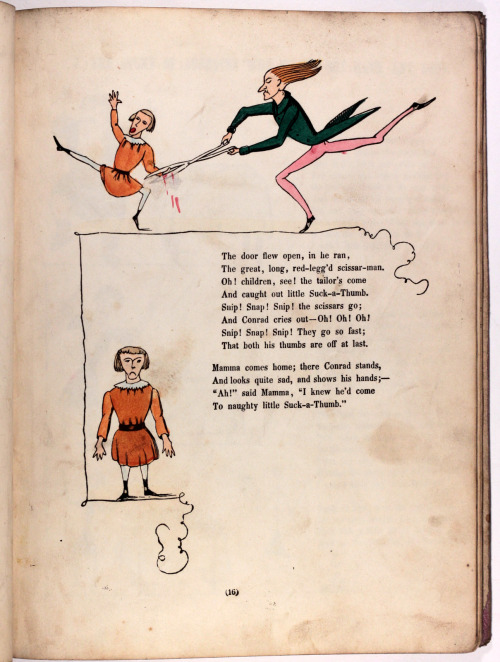 The door flew open, in he ran,
The great, long, red-legg'd scissar-man.
Oh! children, see! the tailor's come
And caught out little Suck-a-Thumb.
Snip! Snap! Snip! the scissars go;
And Conrad cries out—Oh! Oh! Oh!
Snip! Snap! Snip! They go so fast;
That both his thumbs are off at last.
Mamma comes home; there Conrad stands,
And looks quite sad, and shows his hands;—
"Ah!" said Mamma, "I knew he'd come
To naughty little Suck-a-Thumb."
(16)